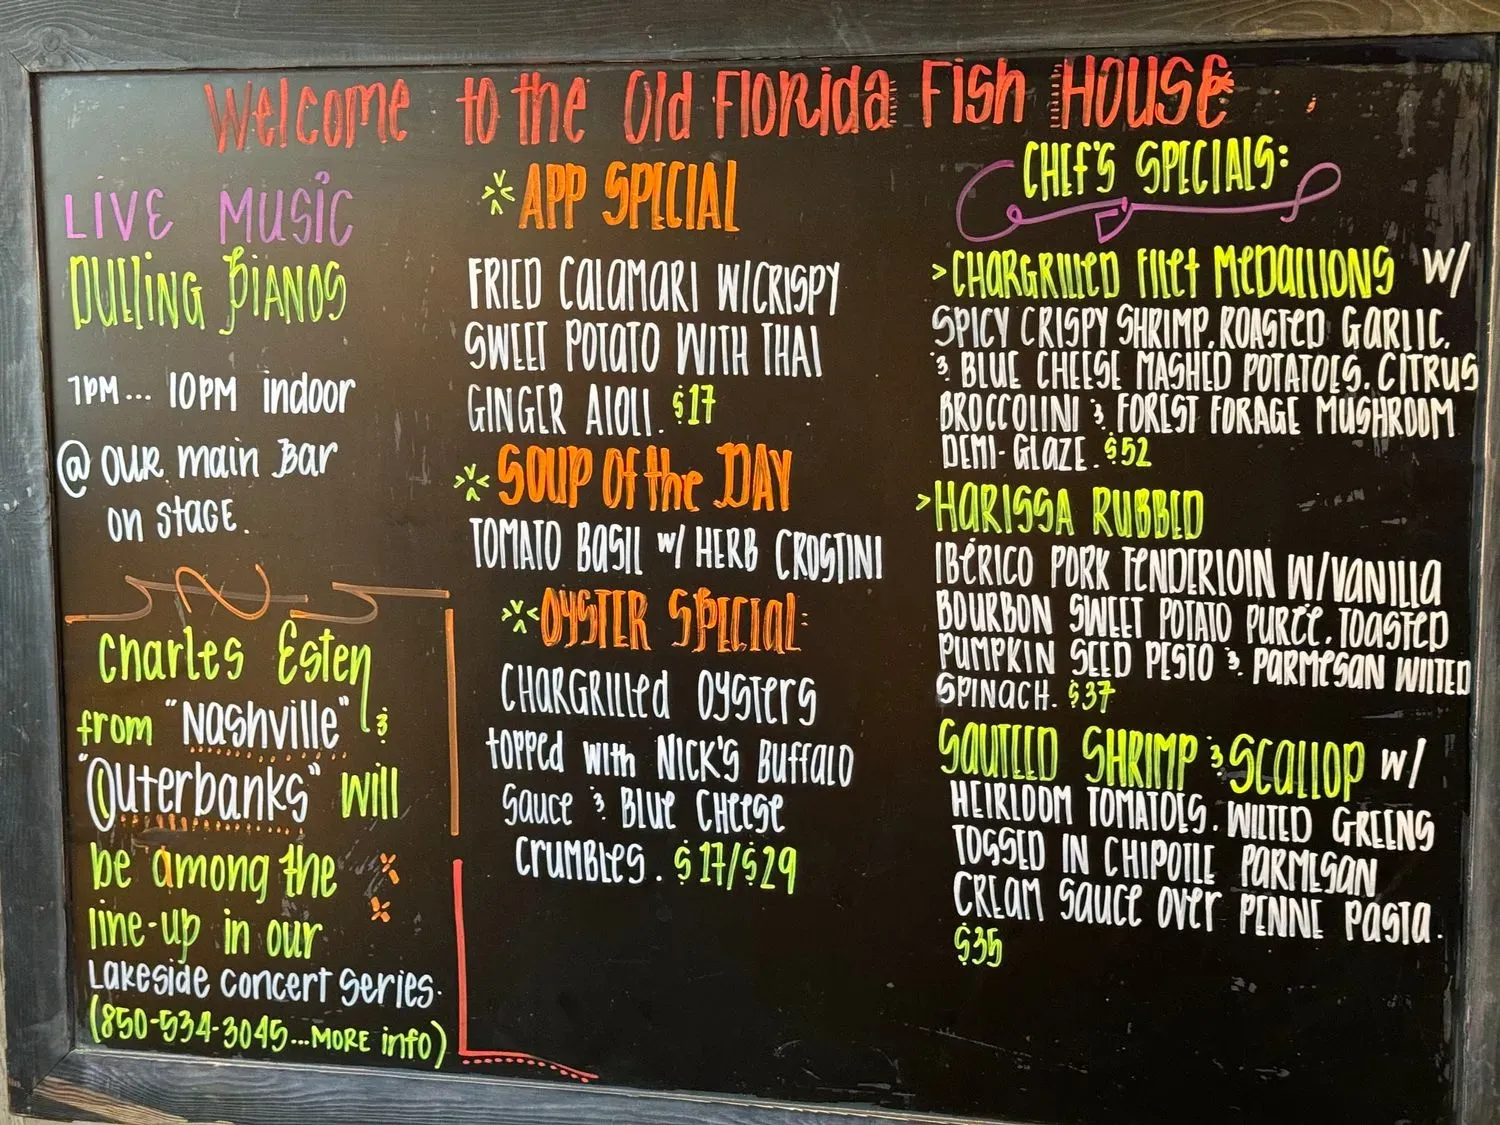 Welcome to the Old Florida Fish HOUSE
LIVE MUSIC
DUELING PIANOS
7PM... 10PM indoor
@ our main Bar
on stage.
Charles Esten
from "Nashville" &
"Outerbanks" will
be among the
line-up in our
Lakeside concert series.
(850-534-3045...MORE info)
APP SPECIAL
FRIED CALAMARI W/CRISPY
SWEET POTATO WITH THAI
GINGER AIOLI. $17
SOUP OF the DAY
TOMATO BASIL w/ HERB CROSTINI
OYSTER SPECIAL:
CHARGRILLED OYSTERS
topped with NICK'S BUFFALO
SAUCE & BLUE CHEESE
CRUMBLES. $17/$29
CHEF'S SPECIALS:
>CHARGRILLED FILET MEDALLIONS W/
SPICY CRISPY SHRIMP, ROASTED GARLIC,
& BLUE CHEESE MASHED POTATOES, CITRUS
BROCCOLINI & FOREST FORAGE MUSHROOM
DEMI-GLAZE. $52
>HARISSA RUBBED
IBÉRICO PORK TENDERLOIN W/VANILLA
BOURBON SWEET POTATO PURÉE, TOASTED
PUMPKIN SEED PESTO & PARMESAN WILTED
SPINACH. $37
SAUTEED SHRIMP & SCALLOP W/
HEIRLOOM TOMATOES, WILTED GREENS
TOSSED IN CHIPOTLE PARMESAN
CREAM SAUCE OVER PENNE PASTA.
$35